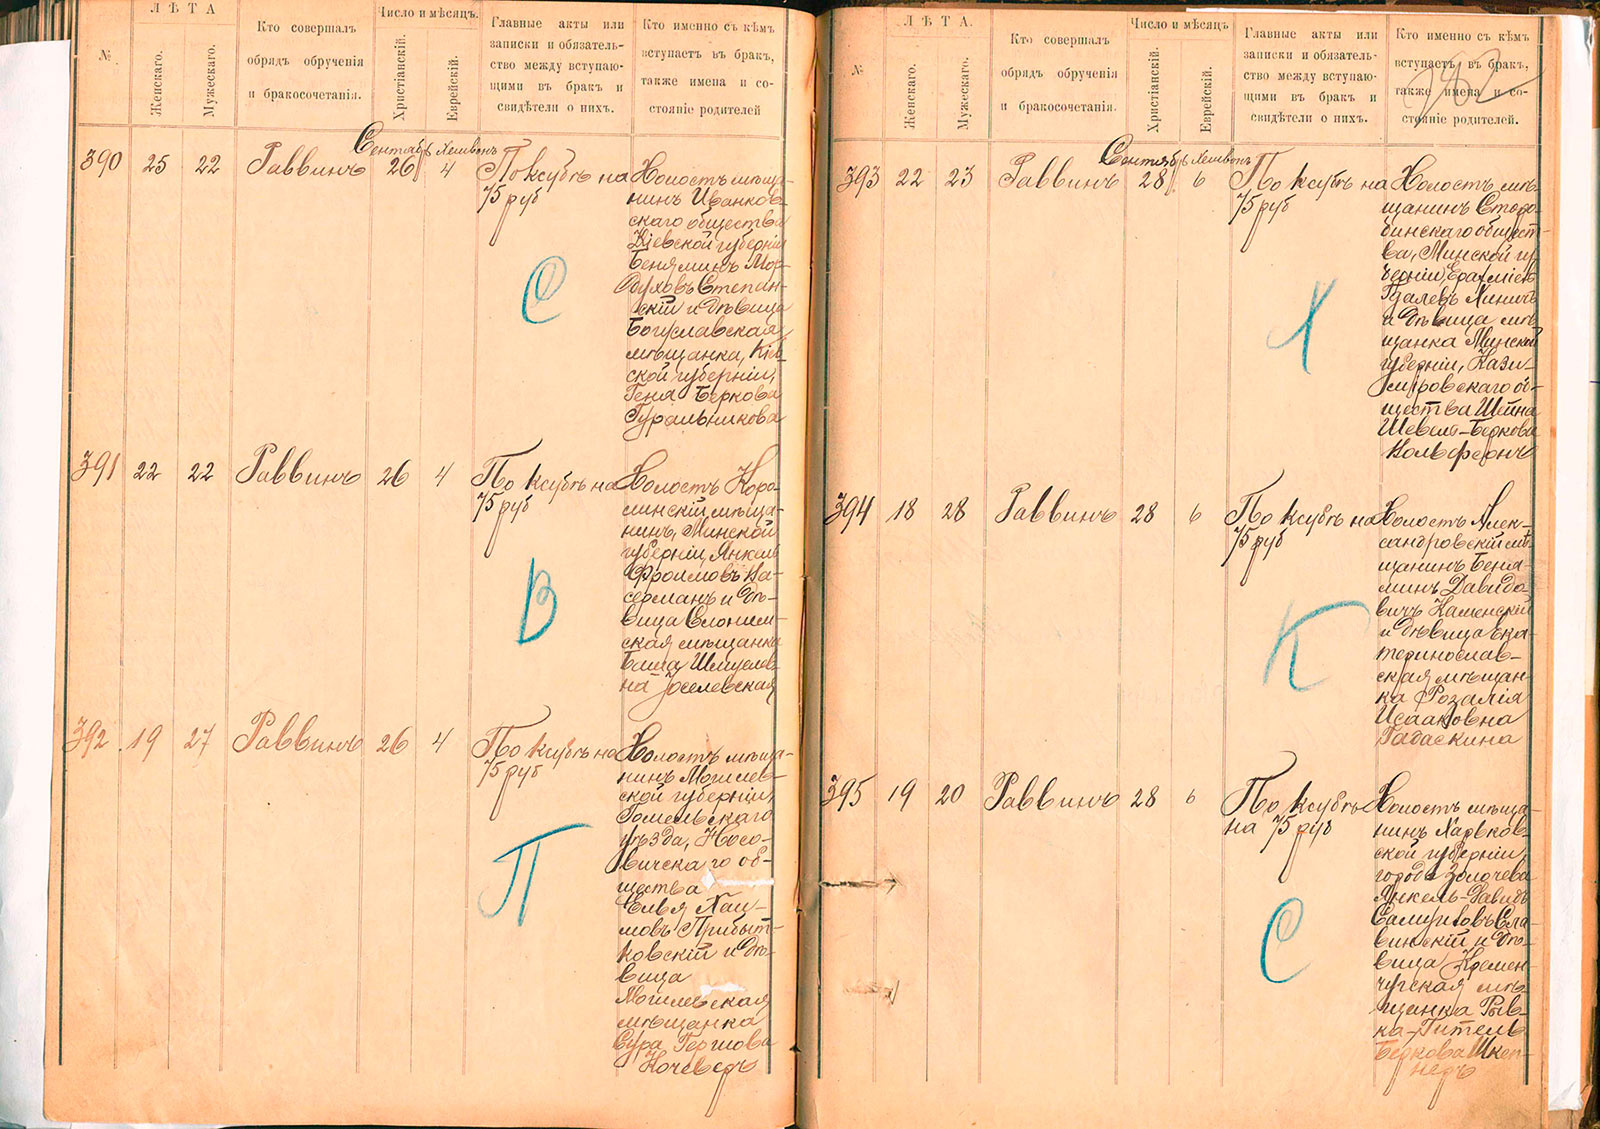 №
ЛѢТА
Женскаго.
Мужескаго.
Кто совершалъ
обрядъ обрученія
и бракосочетанія.
Число и мѣсяцъ.
Христіанскій.
Еврейскій.
Главные акты или
записки и обязатель-
ство между вступаю-
щими въ бракъ и
свидѣтели о нихъ.
Кто именно съ кѣмъ
вступаетъ въ бракъ,
также имена и со-
стояніе родителей
Сентябрь Хешвонъ
390 25 22 Раввинъ 26 4 По ксубѣ на
75 руб
Холостъ мѣща-
нинъ Иванков-
скаго общества
Кіевской губерніи
Беняминъ Мор-
духовъ Степан-
скій и дѣвица
Богуславская
мѣщанка, Кіев-
ской губерніи,
Геня Беркова
Гуральникова
С
391 22 22 Раввинъ 26 4 По ксубѣ на
75 руб
Холостъ Коро-
линскій мѣща-
нинъ, Минской
губерніи, Янкель
Фроимовъ Ва-
серманъ и дѣ-
вица Слоним-
ская мѣщанка
Баша Шмуелев-
на Іоселевская
В
392 19 27 Раввинъ 26 4 По ксубѣ на
75 руб
Холостъ мѣща-
нинъ Могилев-
ской губерніи,
Гомельскаго
уѣзда, Носо-
вичскаго об-
щества
Елья Хаи-
мовъ Прибыт-
ковскій и дѣ-
вица
Могилевская
мѣщанка
Сура Гершова
Кочеверъ
П
№
ЛѢТА.
Женскаго.
Мужескаго.
Кто совершалъ
обрядъ обрученія
и бракосочетанія.
Число и мѣсяцъ
Христіанскій.
Еврейскій.
Главные акты или
записки и обязатель-
ство между вступаю-
щими въ бракъ и
свидѣтели о нихъ.
Кто именно съ кѣмъ
вступаетъ въ бракъ,
также имена и со-
стояніе родителей.
Сентябрь Хешвонъ
393 22 23 Раввинъ 28 6 По ксубѣ на
75 руб
Холостъ мѣ-
щанинъ Старо-
бинскаго общест-
ва, Минской гу-
берніи, Ерахміель
Гдалевъ Линичъ
и дѣвица мѣ-
щанка Минской
губерніи, Кази-
мировскаго об-
щества Шейна
Шевель-Беркова
Вольфсонъ
Л
394 18 28 Раввинъ 28 6 По ксубѣ на
75 руб
Холостъ Алек-
сандровскій мѣ-
щанинъ Беня-
минъ Давидо-
вичъ Каменскій
и дѣвица Ека-
теринослав-
ская мѣщан-
ка Розалія
Исааковна
Гадаскина
К
395 19 20 Раввинъ 28 6 По ксубѣ
на 75 руб
Холостъ мѣща-
нинъ Харьков-
ской губерніи,
города Золочева
Янкель-Давидъ
Самуиловъ Сла-
винскій и дѣ-
вица Кремен-
чугская мѣ-
щанка Рыв-
ка-Гитель
Беркова Шкеп-
неръ
С